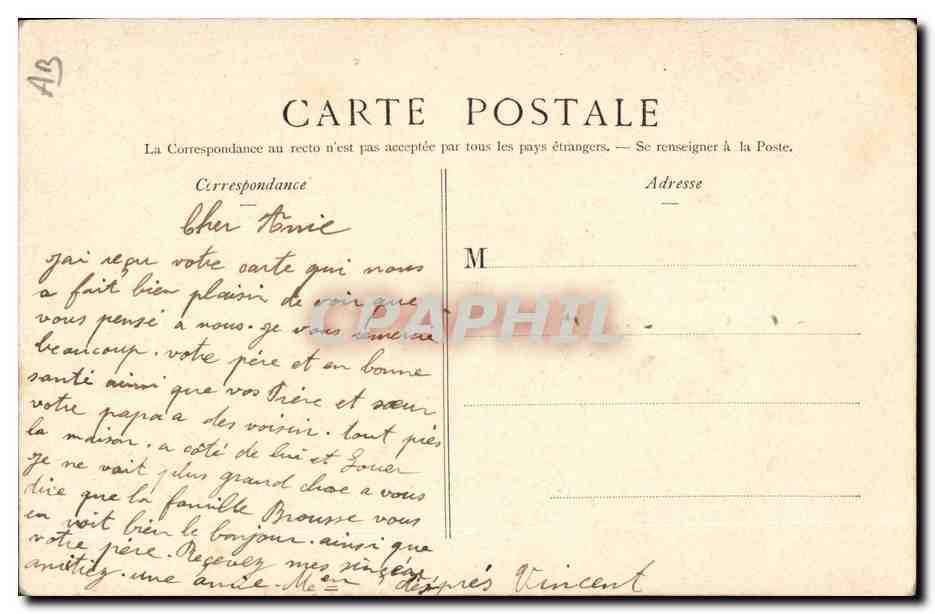 AB
CARTE POSTALE
La Correspondance au recto n'est pas acceptée par tous les pays étrangers. — Se renseigner à la Poste.
Correspondance
Adresse
Cher Amie
M
j'ai reçu votre carte qui nous
a fait bien plaisir de voir que
vous pensé a nous. je vous remercie
beaucoup. votre père et en bonne
santé ainsi que vos frère et sœur
votre papa a des voisin. tout près
la maison. a côté de lui et Louer
Je ne vait plus grand chose a vous
dire que la famille Brousse vous
en voit bien le bonjour. ainsi que
votre père. Recevez mes sincère
amitiez. une amie. després Vincent
CPAPHIL